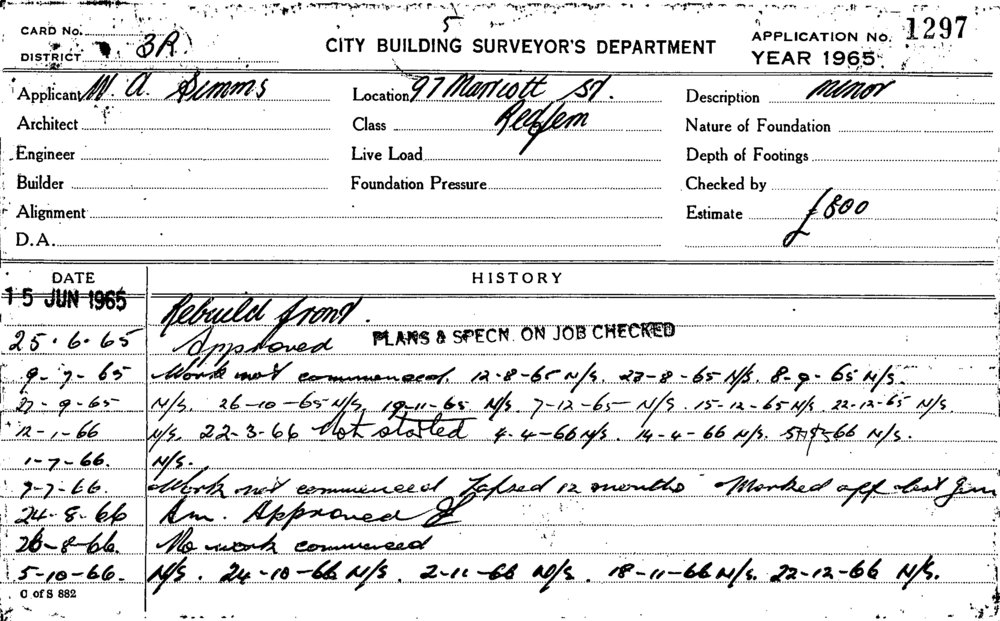 5
CARD No. 3R. CITY BUILDING SURVEYOR'S DEPARTMENT APPLICATION No. 1297
DISTRICT YEAR 1965.
Applicant W. A. Simms Location 97 Marriott St. Description minor
Architect Class Redfern Nature of Foundation
Engineer Live Load Depth of Footings
Builder Foundation Pressure Checked by
Alignment Estimate £800
D.A.
DATE HISTORY
15 JUN 1965 Rebuild front.
25.6.65 Approved PLANS & SPECN. ON JOB CHECKED
9-7-65 Work not commenced. 12-8-65 N/S. 27-8-65 N/S. 8-9-65 N/S.
27-9-65 N/S. 26-10-65 N/S. 19-11-65 N/S. 7-12-65 N/S. 15-12-65 N/S. 22-12-65 N/S.
12-1-66 N/S. 22-3-66 Not started 4-4-66 N/S. 14-4-66 N/S. 66 N/S.
1-7-66. N/S.
9-7-66. Work not commenced Lapsed 12 months Marked off
24-8-66 Am. Approved
26-8-66. No work commenced
5-10-66. N/S. 24-10-66 N/S. 2-11-66 N/S. 18-11-66 N/S. 22-12-66 N/S.
C of S 882